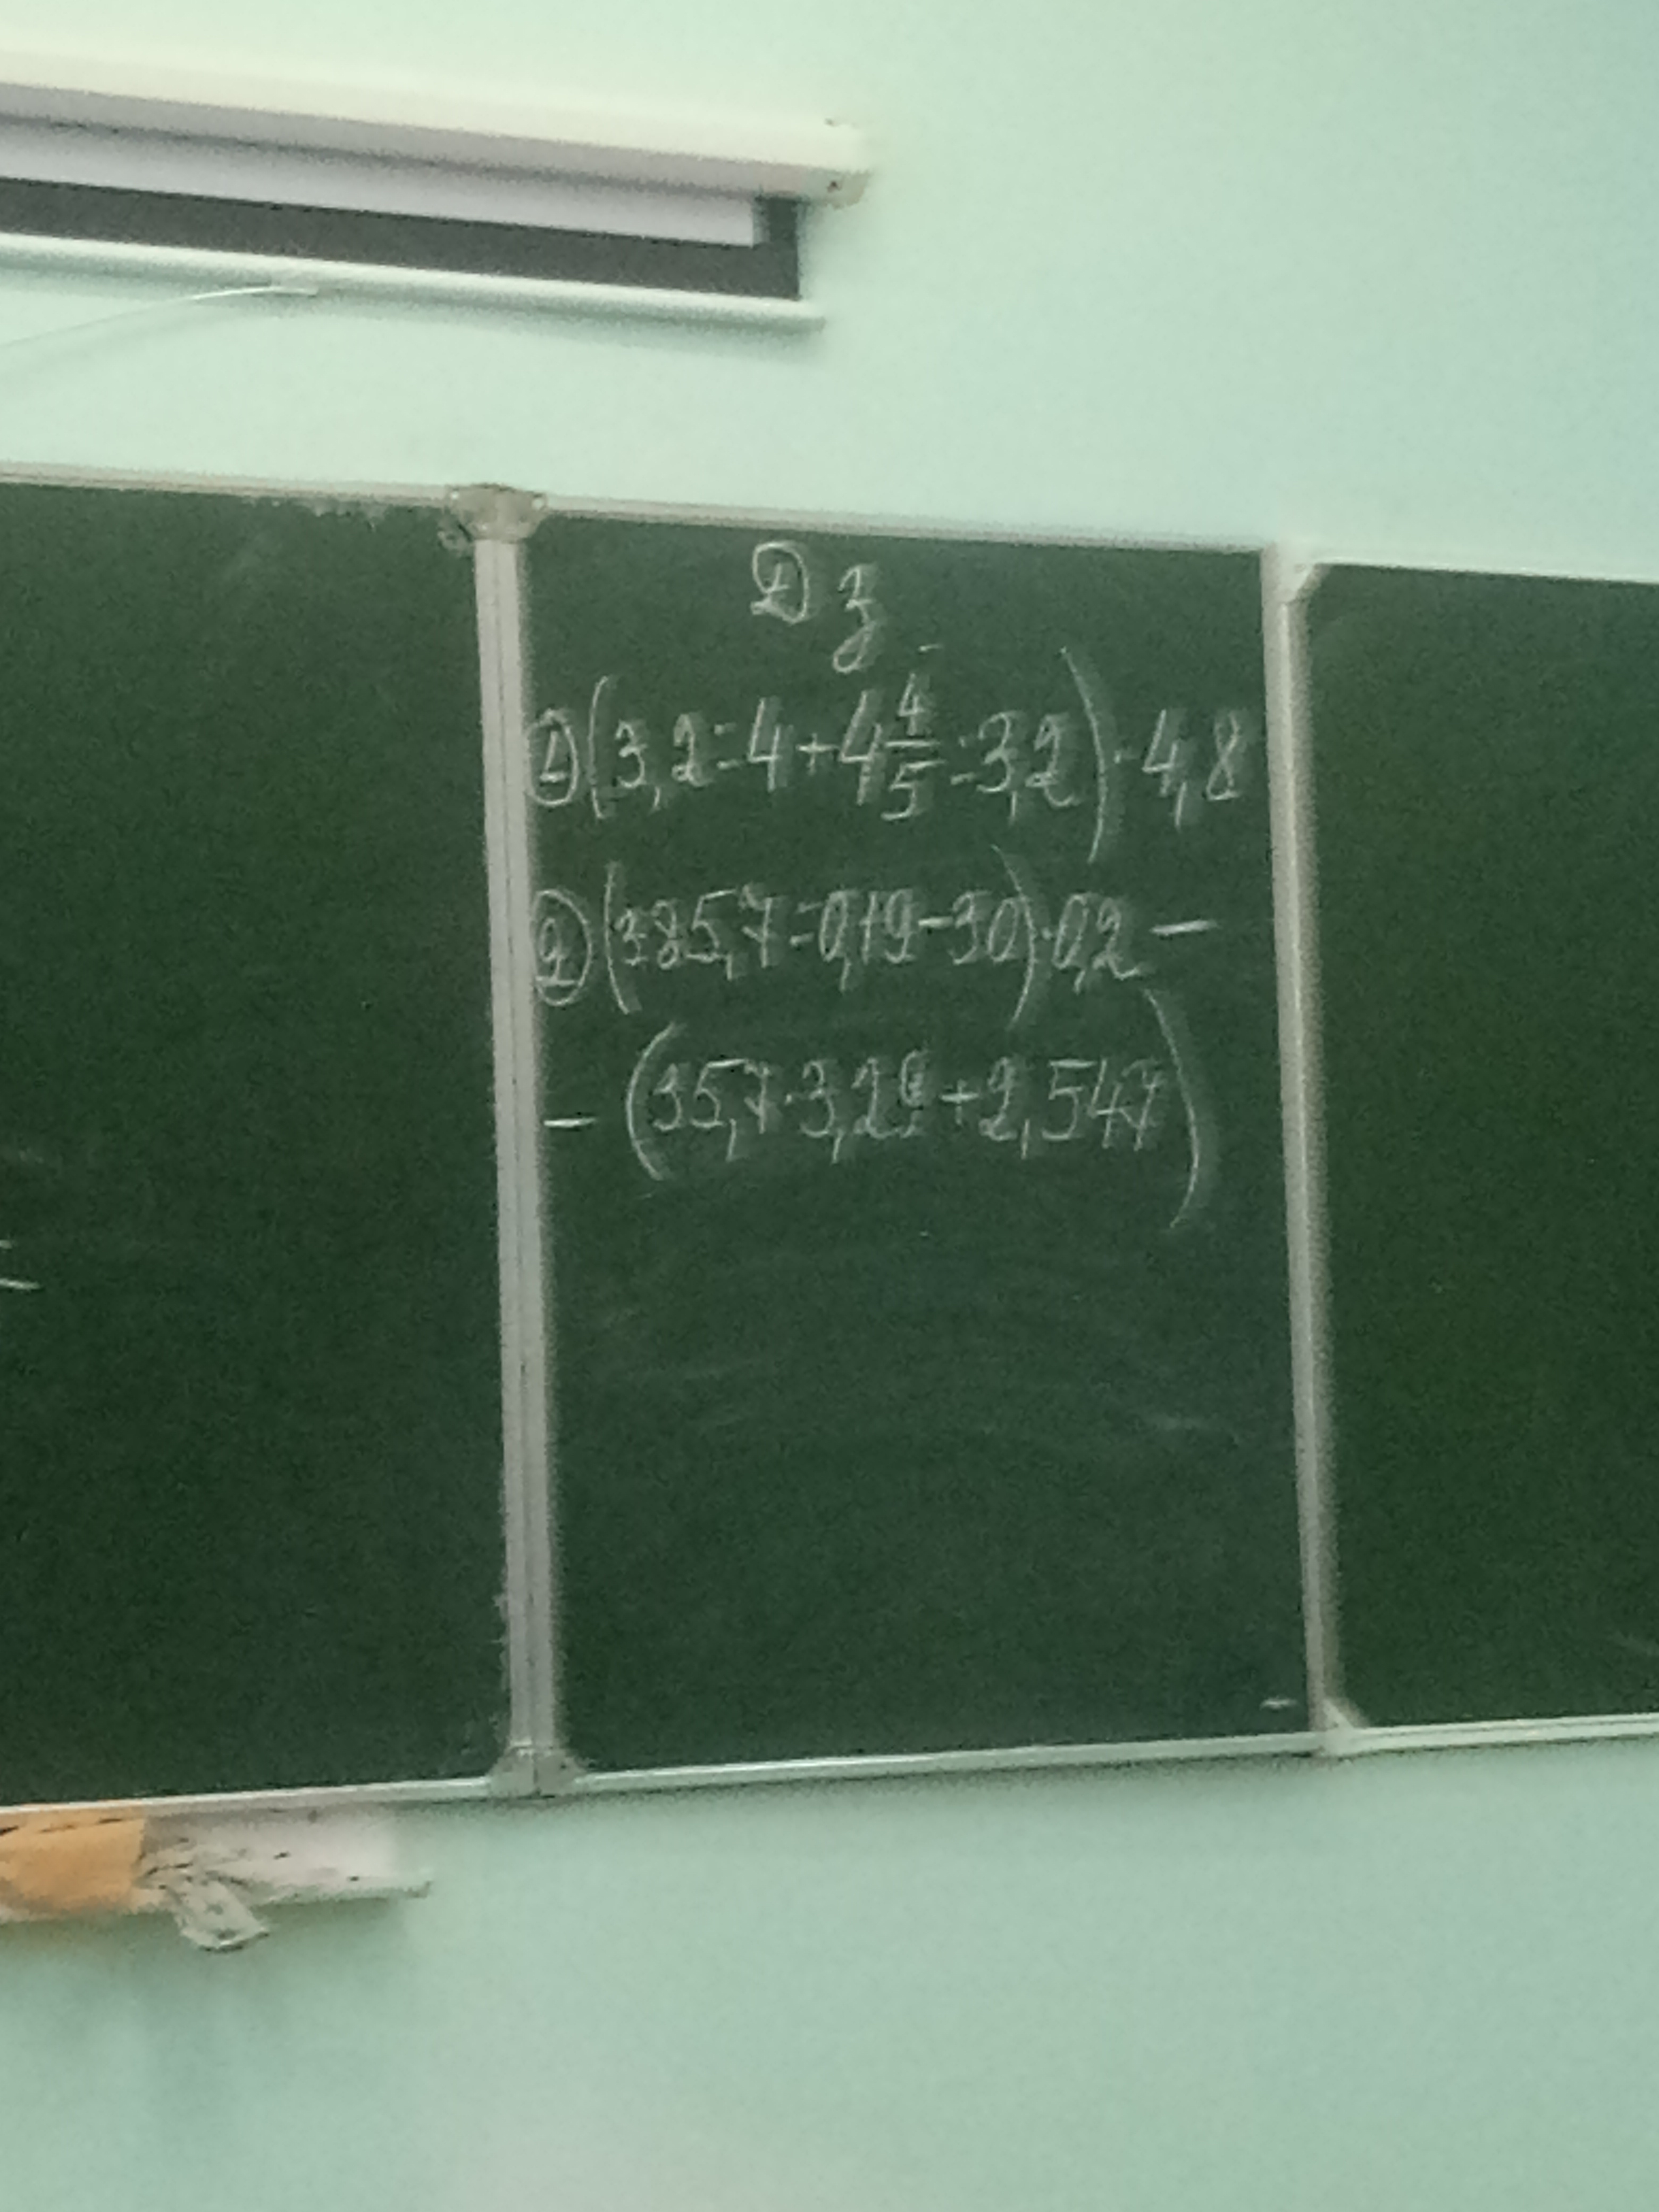 Дз
① (3,2:4+4 4/5:3,2)·4,8
② (385,7:0,19-30)·0,2 -
- (35,7·3,29+2,547)